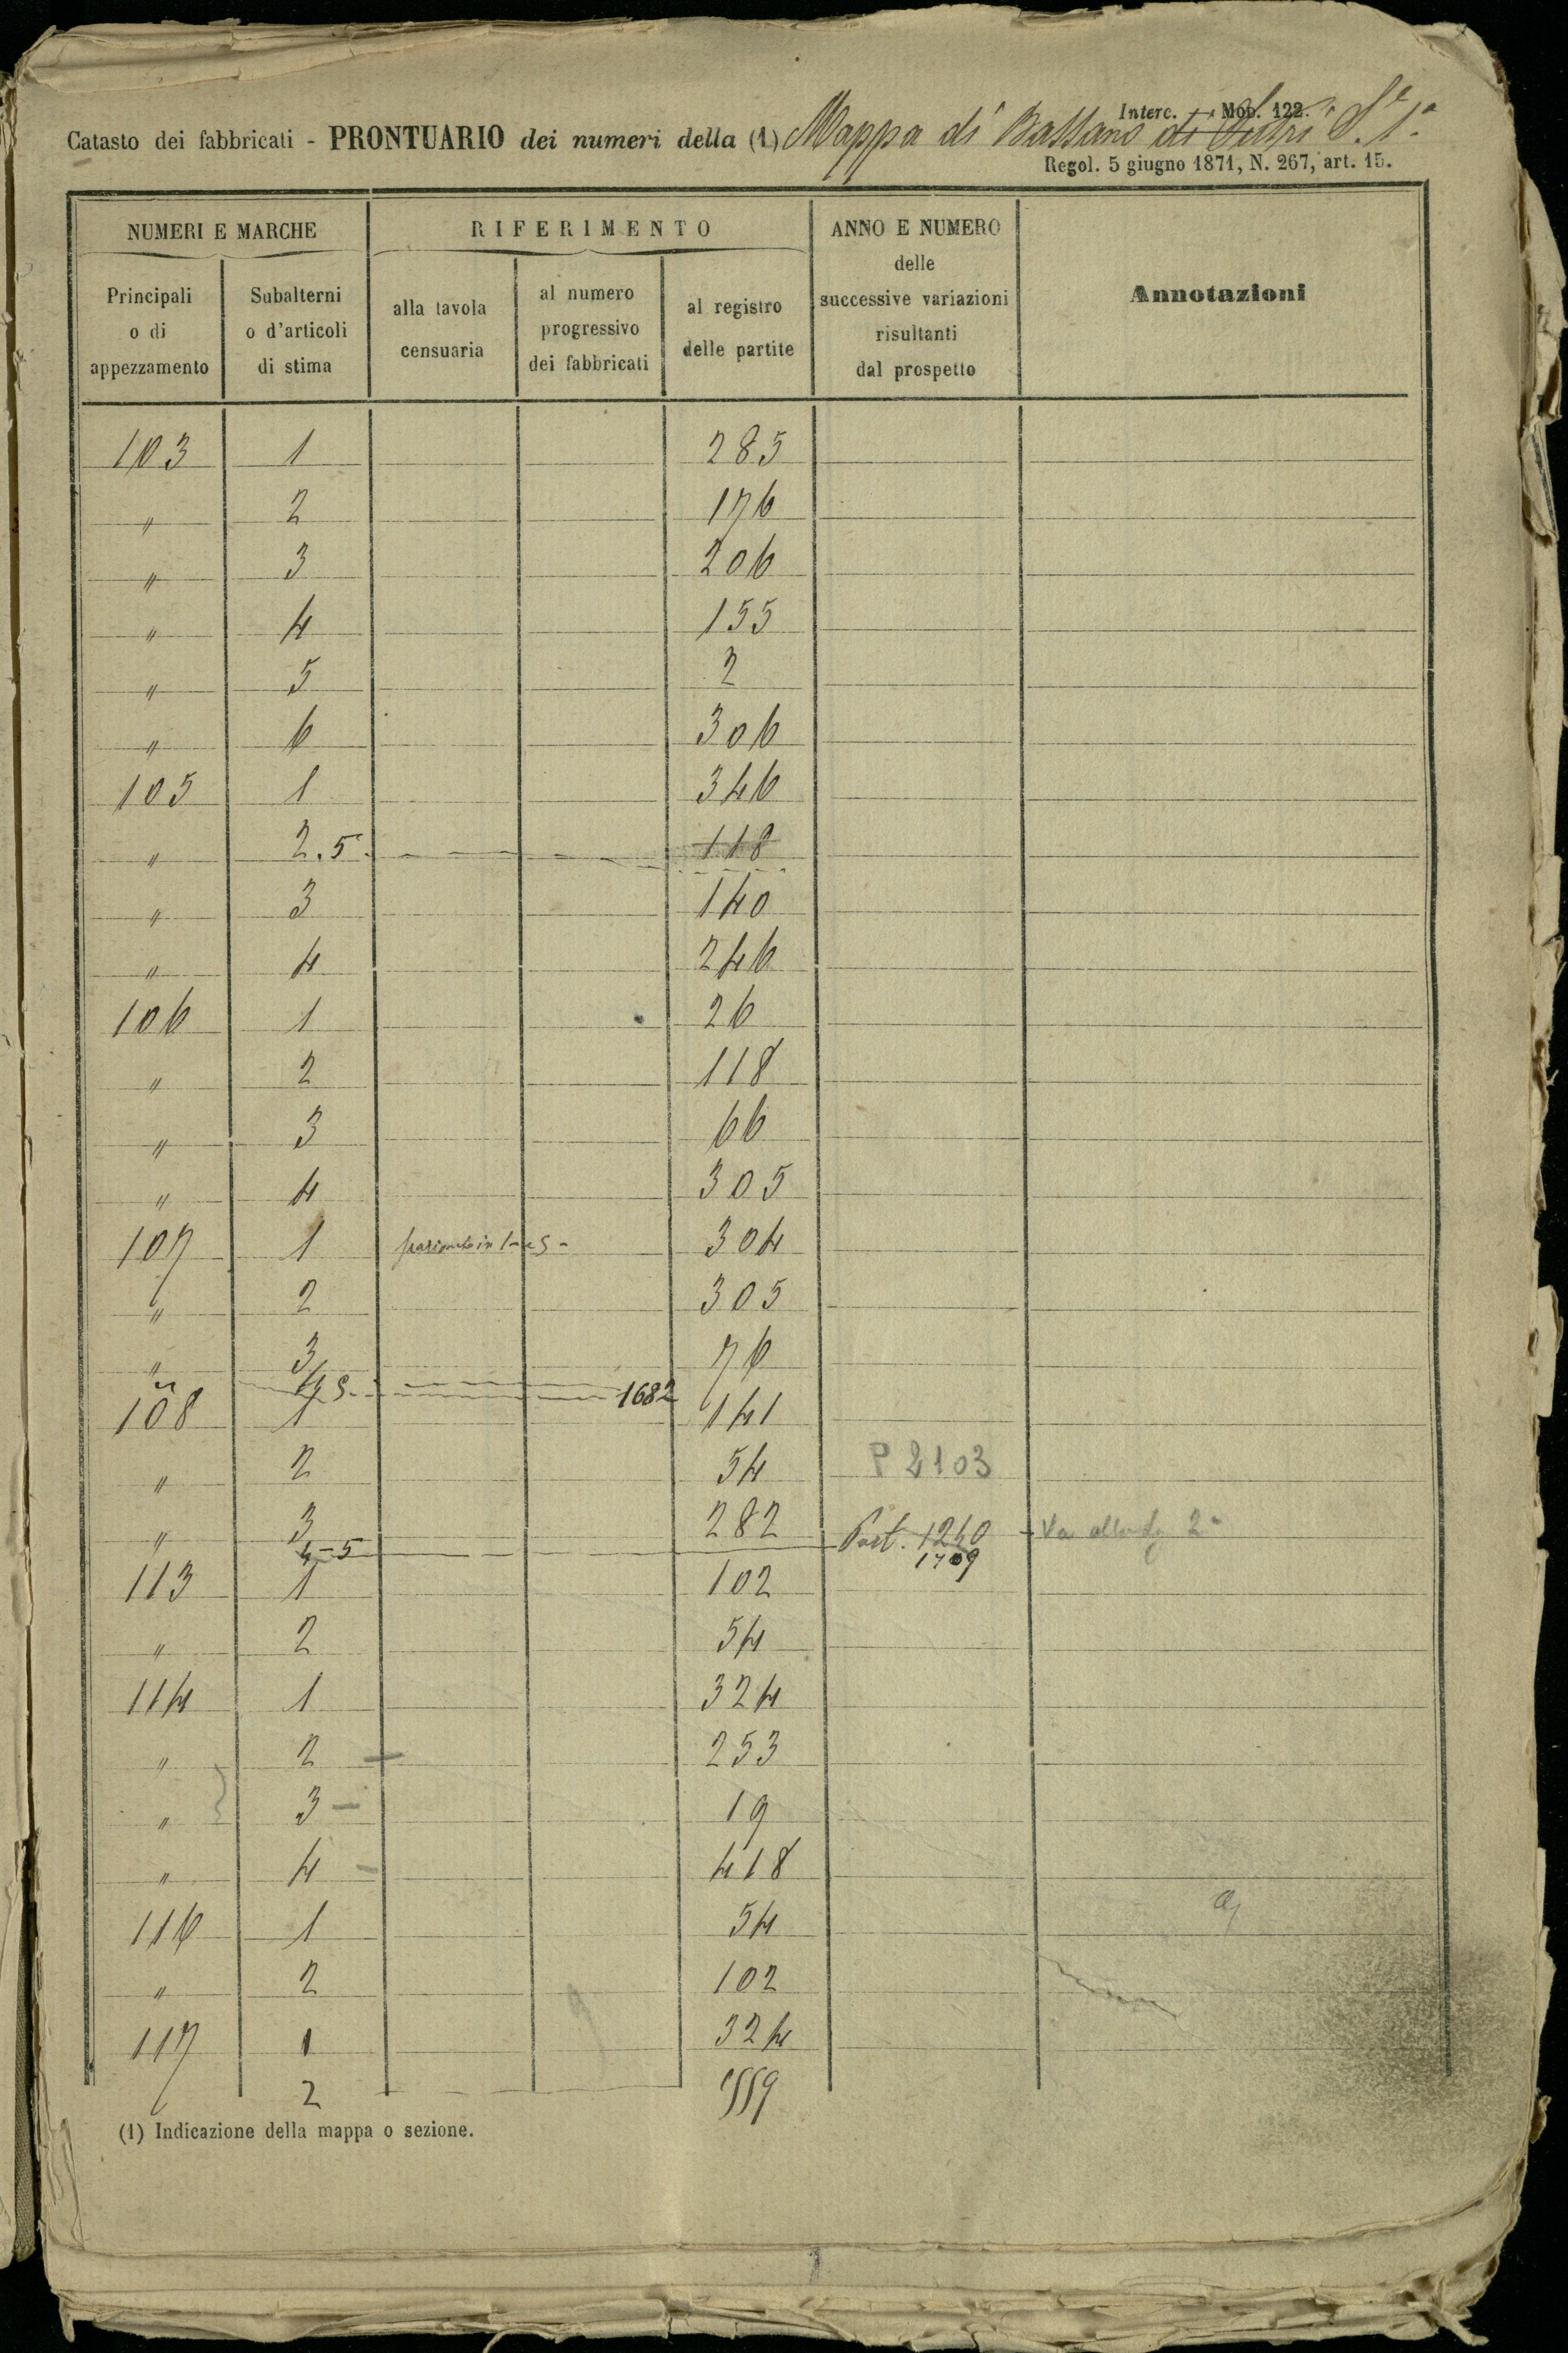 Interc. Mod. 122.
Catasto dei fabbricati - PRONTUARIO dei numeri della (1) Mappa di Bassano di Sutri S.ª 1ª
Regol. 5 giugno 1871, N. 267, art. 15.
NUMERI E MARCHE RIFERIMENTO ANNO E NUMERO delle successive variazioni risultanti dal prospetto Annotazioni
Principali o di appezzamento Subalterni o d'articoli di stima alla tavola censuaria al numero progressivo dei fabbricati al registro delle partite
103 1 285
" 2 176
" 3 206
" 4 155
" 5 2
" 6 306
105 1 346
" 2.5 118
" 3 140
" 4 246
106 1 26
" 2 118
" 3 66
" 4 305
107 1 304
" 2 305
" 3 76
" 1682
108 1 141
" 2 54 P 2103
" 3 282 Part. 1240 Va 2ª
4-5 1709
113 1 102
" 2 54
114 1 324
" 2 253
" 3 19
" 4 418
116 1 54
" 2 102
117 1 324
2 1559
(1) Indicazione della mappa o sezione.